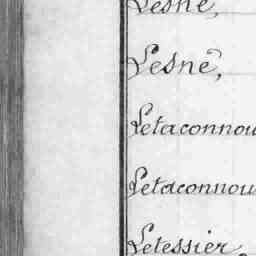 Lesné,
Lesné,
Letaconnou
Letaconnou
Letessier,